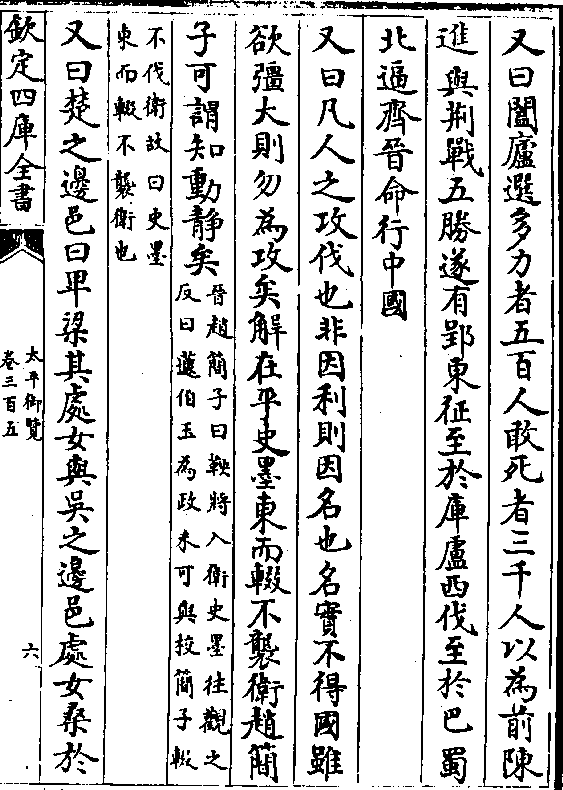 又曰闔廬選多力者五百人敢死者三千人以為前陳
進與荆戰五勝遂有郢東征至於庫盧西伐至於巴蜀
北逼齊晉命行中國
又曰凡人之攻伐也非因利則因名也名實不得國雖
欲彊大則勿為攻矣解在乎史墨東而輟不襲衛趙簡
子可謂知動靜矣
晉趙簡子曰鞅將入衛史墨往觀之
反曰蘧伯玉為政未可與挍簡子輟
不伐衛故曰史墨
東而輟不襲衛也
又曰楚之邊邑曰卑梁其處女與吳之邊邑處女桑於
欽定四庫全書
太平御覽
卷三百五
六